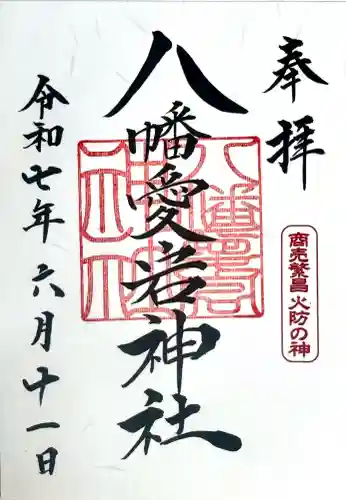 奉拝
商売繁昌 火防の神
八幡愛岩神社
令和七年六月十一日